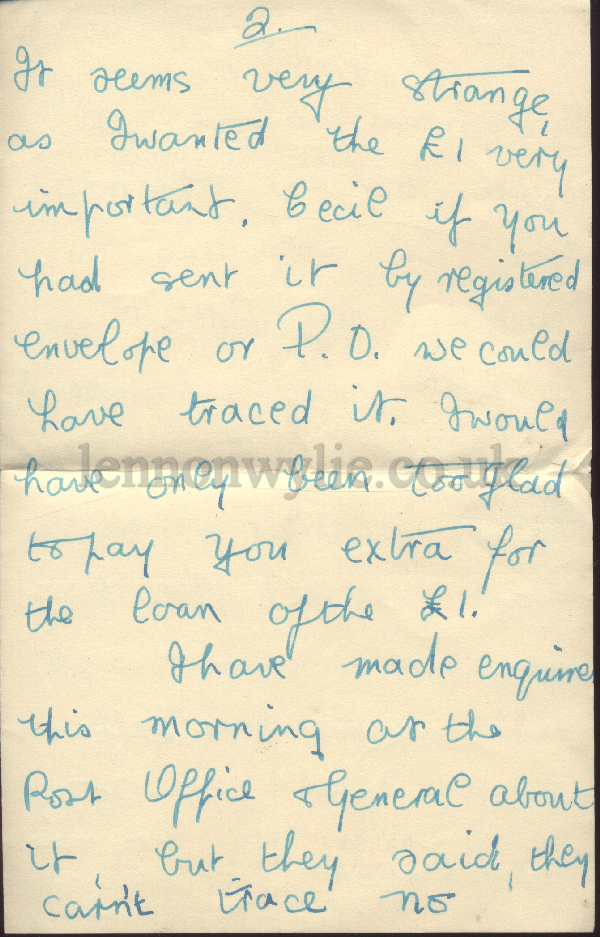 2.
It seems very strange,
as I wanted the £1 very
important. Cecil if you
had sent it by registered
envelope or P.O. we could
have traced it. I would
lennonwylie.co.uk
have only been too glad
to pay you extra for
the loan of the £1.
I have made enquires
this morning at the
Post Office & General about
it, but they said, they
carn't trace no